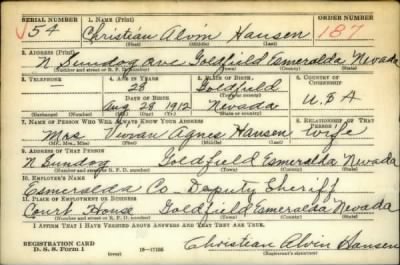 SERIAL NUMBER 1. NAME (Print) ORDER NUMBER
54 Christian Alvin Hansen 187
(First) (Middle) (Last)
2. ADDRESS (Print)
N Sundog ave Goldfield Esmeralda Nevada
(Number and street or R. F. D. number) (Town) (County) (State)
3. TELEPHONE 4. AGE IN YEARS 5. PLACE OF BIRTH 6. COUNTRY OF CITIZENSHIP
— 28 Goldfield
DATE OF BIRTH
Aug 28 1912 Nevada U.S A
(Exchange) (Number) (Mo.) (Day) (Yr.) (State or country)
7. NAME OF PERSON WHO WILL ALWAYS KNOW YOUR ADDRESS 8. RELATIONSHIP OF THAT PERSON
Mrs Vivian Agnes Hansen Wife
(Mr., Mrs., Miss) (First) (Middle) (Last)
9. ADDRESS OF THAT PERSON
N Sundog Goldfield Esmeralda Nevada
(Number and street or R. F. D. number) (Town) (County) (State)
10. EMPLOYER'S NAME
Esmeralda Co Deputy Sheriff
11. PLACE OF EMPLOYMENT OR BUSINESS
Court House Goldfield Esmeralda Nevada
(Number and street or R. F. D. number) (Town) (County) (State)
I AFFIRM THAT I HAVE VERIFIED ABOVE ANSWERS AND THAT THEY ARE TRUE.
REGISTRATION CARD
D. S. S. Form 1 (over) Christian Alvin Hansen
(Registrant's signature)